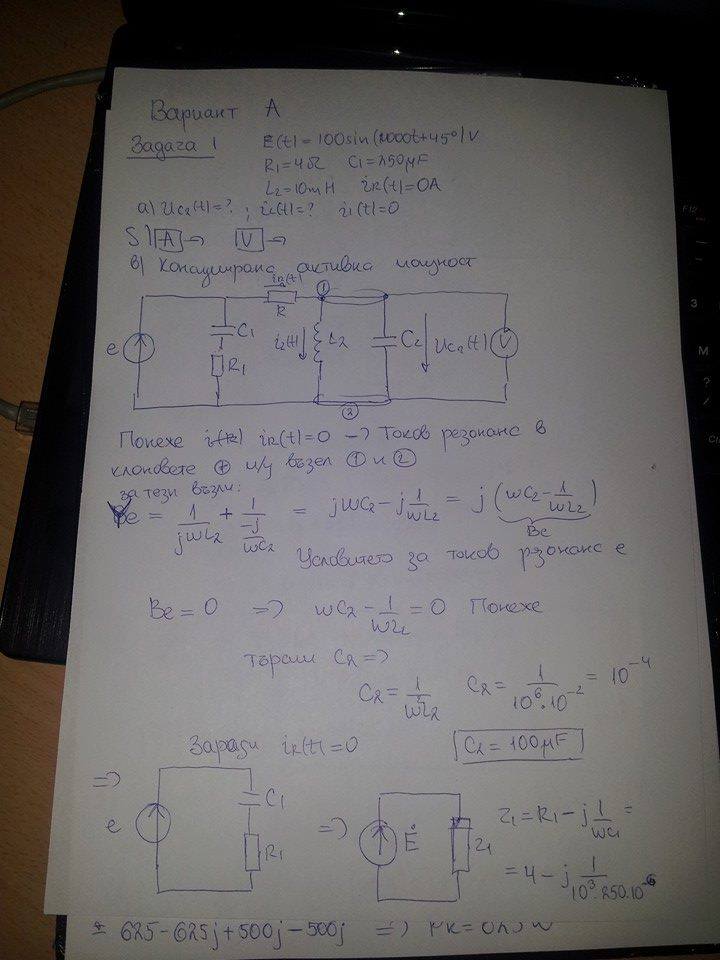 Вариант А
Задача 1 E(t)=100sin(1000t+45°)V
R1=4Ω C1=250μF
L2=10mH iR(t)=0A
а) Uc2(t)=? ; i2(t)=? i1(t)=0
S) A → V →
в) Консумирана активна мощност
iR(t)
R
①
e
C1
R1
i2(t)
L2
C2
Uc2(t)
V
②
Понеже iR(t)=0 → Токов резонанс в
клоновете м/у възел ① и ②
за тези възли:
Ye = 1/jωL2 + 1/(-j/ωC2) = jωC2 - j 1/ωL2 = j (ωC2 - 1/ωL2)
Be
Условието за токов резонанс е
Be = 0 => ωC2 - 1/ωL2 = 0 Понеже
търсим C2 =>
C2 = 1/ω²L2 C2 = 1/10⁶.10⁻² = 10⁻⁴
Заради iR(t)=0 C2 = 100μF
=>
e
C1
R1
=>
Ė
Z1
Z1 = R1 - j 1/ωC1 =
= 4 - j 1/10³.250.10⁻⁶
= 625-625j+500j-500j =>